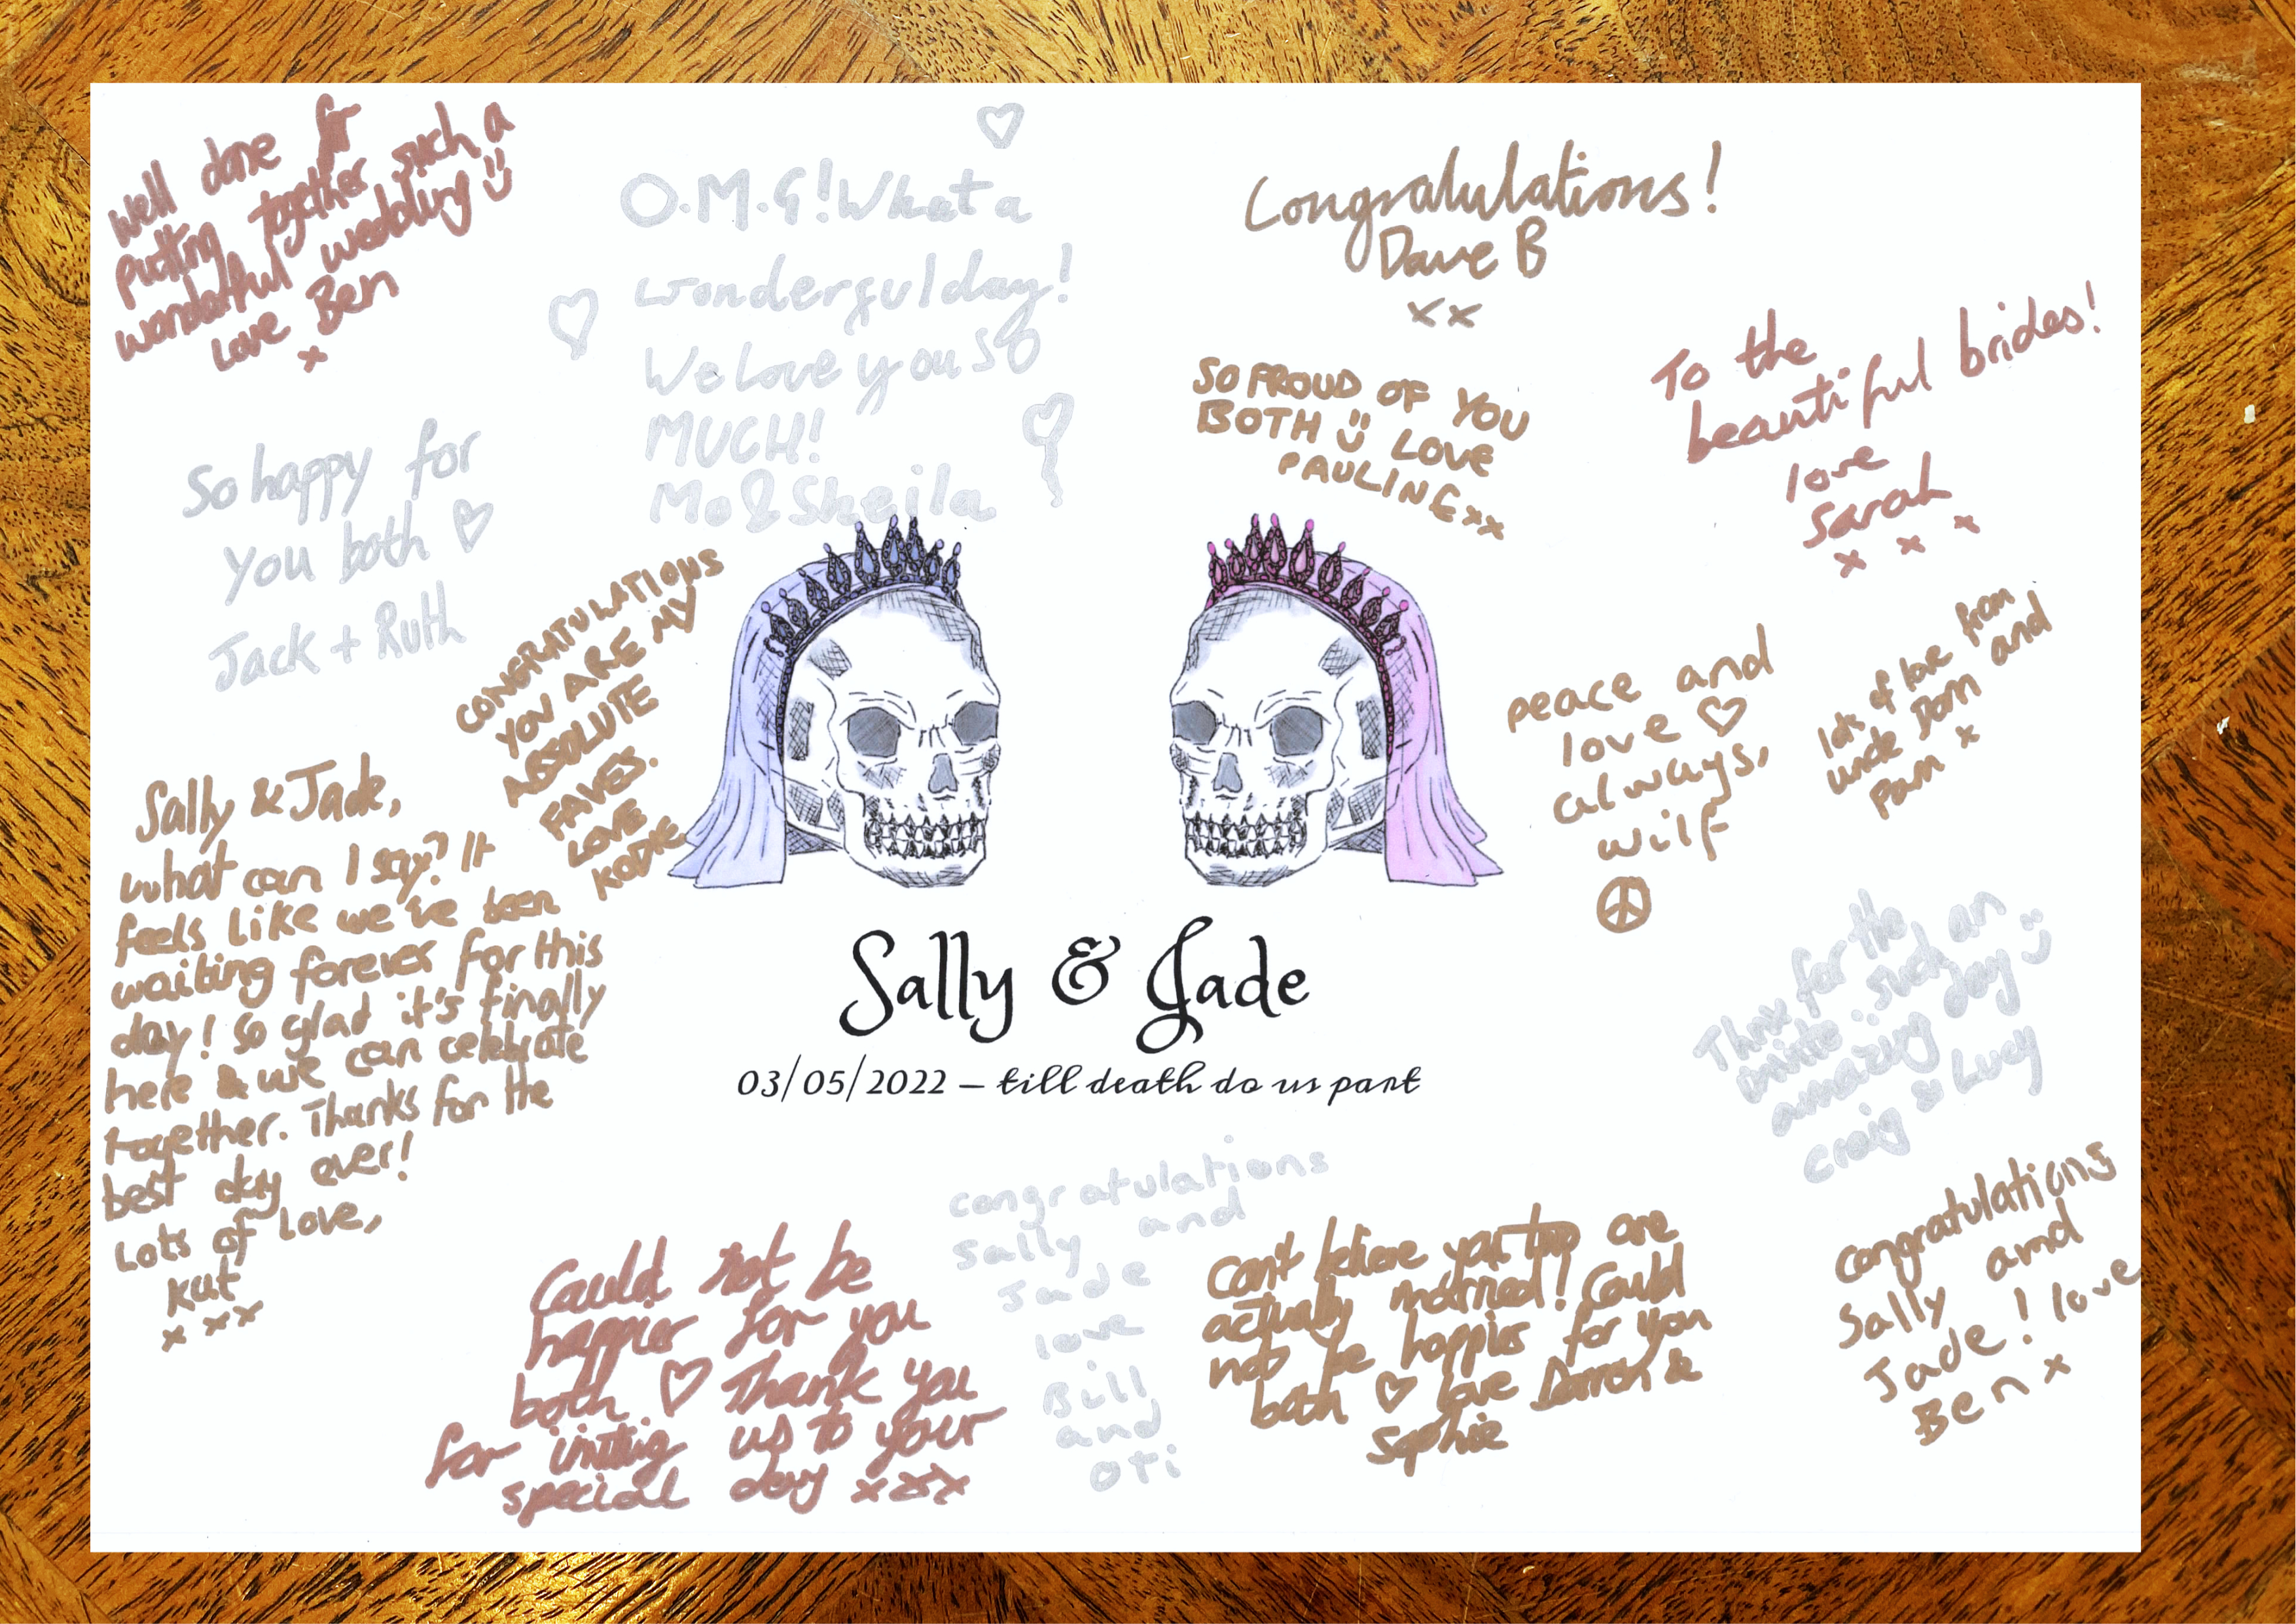 Well done for
putting together such a
wonderful wedding
Love Ben
x
O.M.G! What a
wonderful day!
We love you SO
MUCH!
Mo & Sheila
Congratulations!
Dave B
xx
SO PROUD OF YOU
BOTH LOVE
PAULINE xx
To the
beautiful brides!
love
Sarah
x x x
So happy for
you both
Jack + Ruth
CONGRATULATIONS
YOU ARE MY
ABSOLUTE
FAVES.
LOVE
KODIE
peace and
love
always,
wilf
lots of love from
uncle Dom and
Pam x
Sally & Jade,
what can I say? It
feels like we've been
waiting forever for this
day! So glad it's finally
here & we can celebrate
together. Thanks for the
best day ever!
Lots of Love,
Kat
x xx
Sally & Jade
03/05/2022 – till death do us part
Thnx for the
invite :: such an
amazing day
Craig & Lucy
Could not be
happier for you
both Thank you
for inviting us to your
special day xxx
congratulations
Sally and
Jade
love
Bill
and
Oti
Can't believe you two are
actually married! Could
not be happier for you
both love Darren &
Sophie
Congratulations
Sally and
Jade! love
Ben x